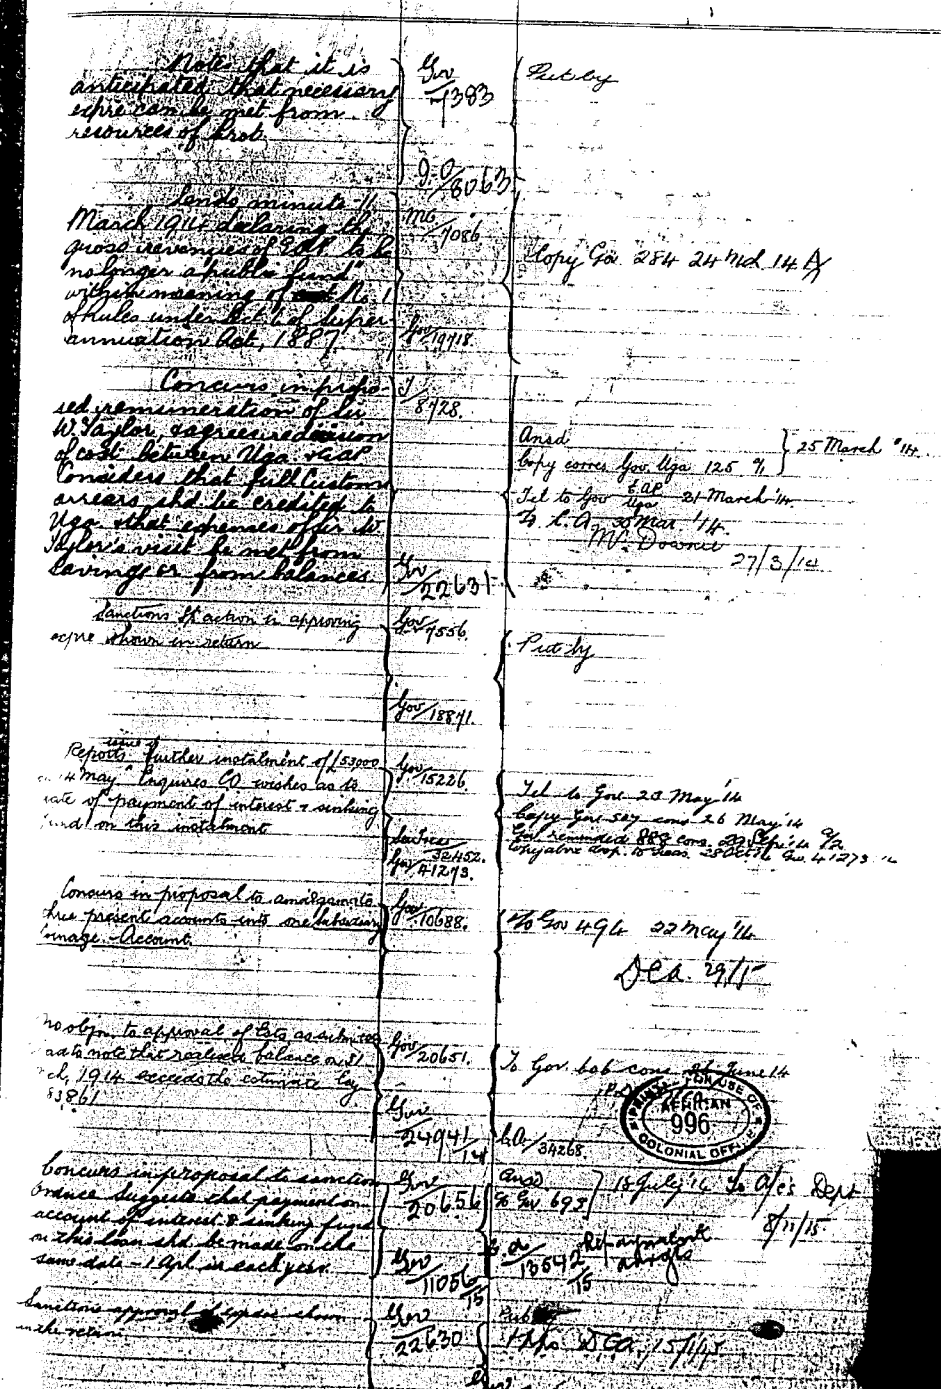 Notes that it is
anticipated that necessary
expre can be met from
resources of Prot.
Gov / 7383
Put by
G.O / 8063
Sends minute 11
March 1914 declaring the
gross revenues of EAP. to be
no longer a public fund"
within meaning of No. 1
of Rules under Sect 6 of Super
annuation Act, 1887.
MO / 7086
Gov / 19718.
Copy Gov 284 24 Mch 14
Concurs in propo-
sed remuneration of Sir
W. Taylor, & agrees re division
of cost between Uga & EAP
Considers that full Customs
arrears shd be credited to
Uga & that expenses of Sir W
Taylor's visit be met from
Savings or from balances
T / 8728.
Gov / 22631
Ansd
Copy corres Gov. Uga 125 } 25 March '14.
Tel to Gov EAP / Uga 21 March '14.
To C.A. 30 Mar '14.
27/3/14
Sanctions action in approving
expre shown in return
Gov / 7556.
Gov / 18871.
Put by
Reports issue of further instalment of £53000
4 May Enquires CO wishes as to
rate of payment of interest & sinking
fund on this instalment
Gov / 15226.
32452.
Gov / 41273.
Tel to Gov 23 May '14
Copy Gov 527 cons 26 May '14
Gov reminded 888 cons. 22 Sept '14
Copy above desp. to Treas. 28 Oct 14 Gov. 41273 14
Concurs in proposal to amalgamate
three present accounts into one subsidiary
coinage Account.
Gov / 10688.
To Gov 494 22 May '14
DCA. 29/5
No objn. to approval of Ests as submitted
and to note that realised balance on 31
ch, 1914 exceeds the estimate by
3861
Gov / 20651.
Gov / 24941 / 14
To Gov. 606 cons 26 June 14
C.A. / 34268.
PRINTED FOR USE OF
AFRICAN
996
COLONIAL OFFICE
Concurs in proposal to sanction
Suggests that payment on
account of interest & sinking fund
on this loan shd. be made on the
same date - 1 Apl. in each year.
Gov / 20656
Gov / 11056 / 15
Ansd
To Gov 693 } 18 July '14 To A/cs Dept
8/11/15
13542 / 15 Repayment
arrgts
Sanctions approval of expre shown
in the return
Gov / 22630
Put by
DCA. 15/1/15
Gov